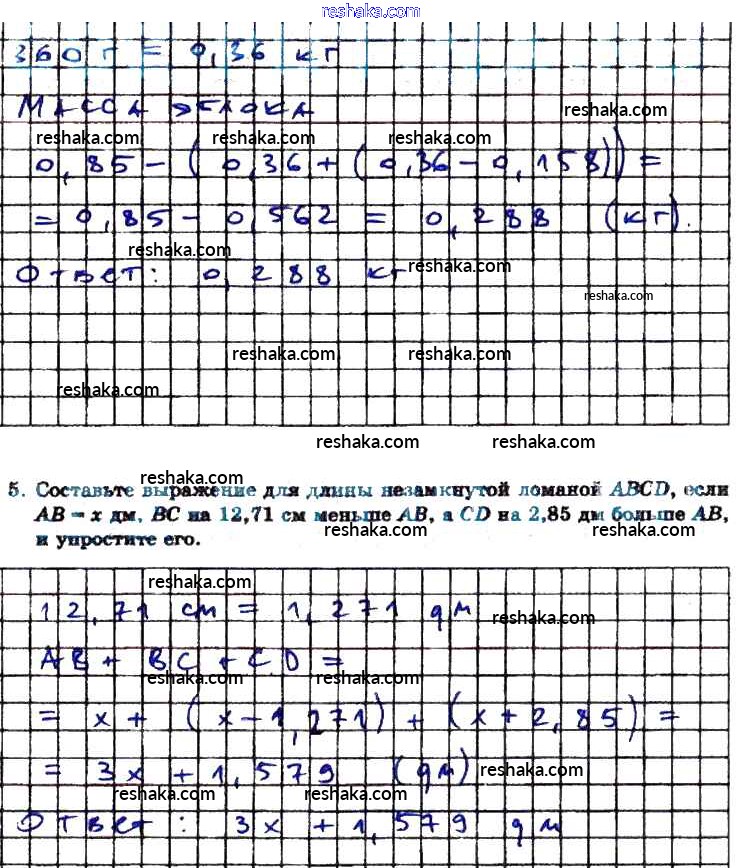 reshaka.com
360 г = 0,36 кг
Масса яблока
reshaka.com
reshaka.com reshaka.com reshaka.com
0,85 - (0,36 + (0,36 - 0,158)) =
= 0,85 - 0,562 = 0,288 (кг).
reshaka.com
Ответ: 0,288 кг
reshaka.com
reshaka.com
reshaka.com reshaka.com
reshaka.com
reshaka.com reshaka.com
reshaka.com
5. Составьте выражение для длины незамкнутой ломаной ABCD, если
AB = x дм, BC на 12,71 см меньше AB, а CD на 2,85 дм больше AB,
и упростите его.
reshaka.com reshaka.com
reshaka.com
12,71 см = 1,271 дм
reshaka.com
AB + BC + CD =
reshaka.com reshaka.com
= x + (x - 1,271) + (x + 2,85) =
= 3x + 1,579 (дм)
reshaka.com
reshaka.com reshaka.com
Ответ: 3x + 1,579 дм